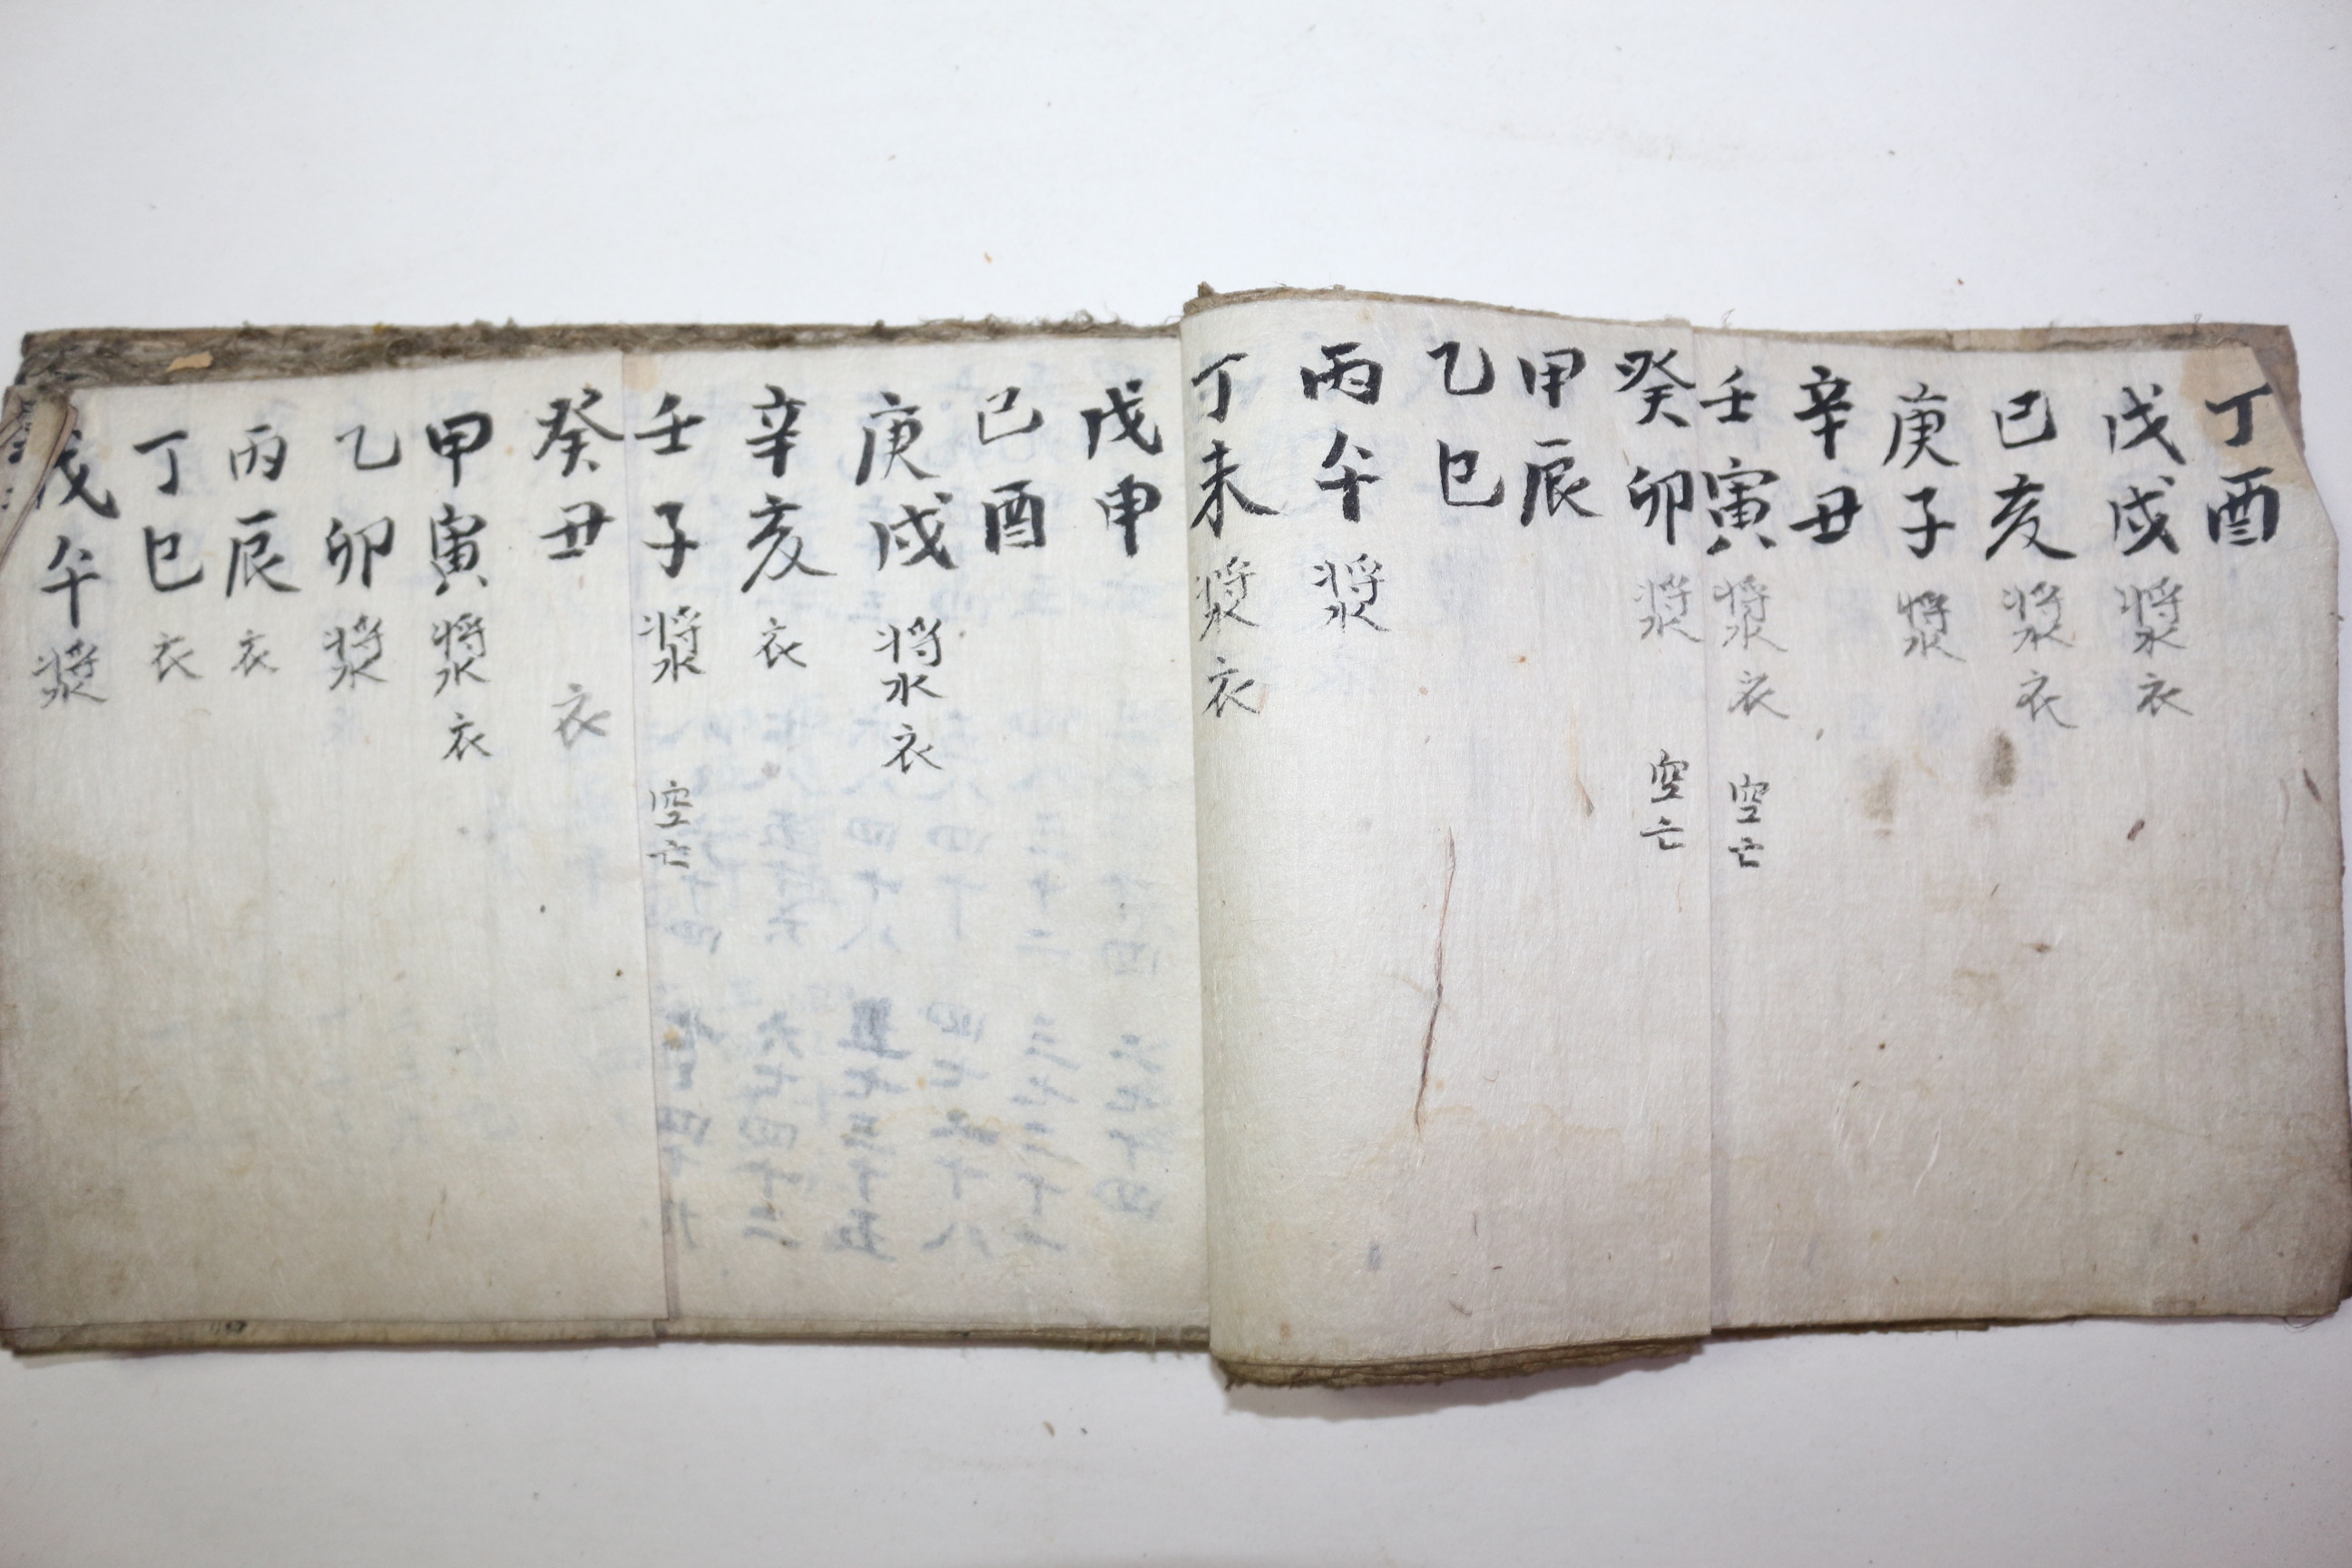 丁酉
戊戌 漿 衣
己亥 漿 衣
庚子 漿
辛丑
壬寅 漿 衣 空亡
癸卯 漿 空亡
甲辰
乙巳
丙午 漿
丁未 漿 衣
戊申
己酉
庚戌 漿 衣
辛亥 衣
壬子 漿 空亡
癸丑 衣
甲寅 漿 衣
乙卯 漿
丙辰 衣
丁巳 衣
戊午 漿